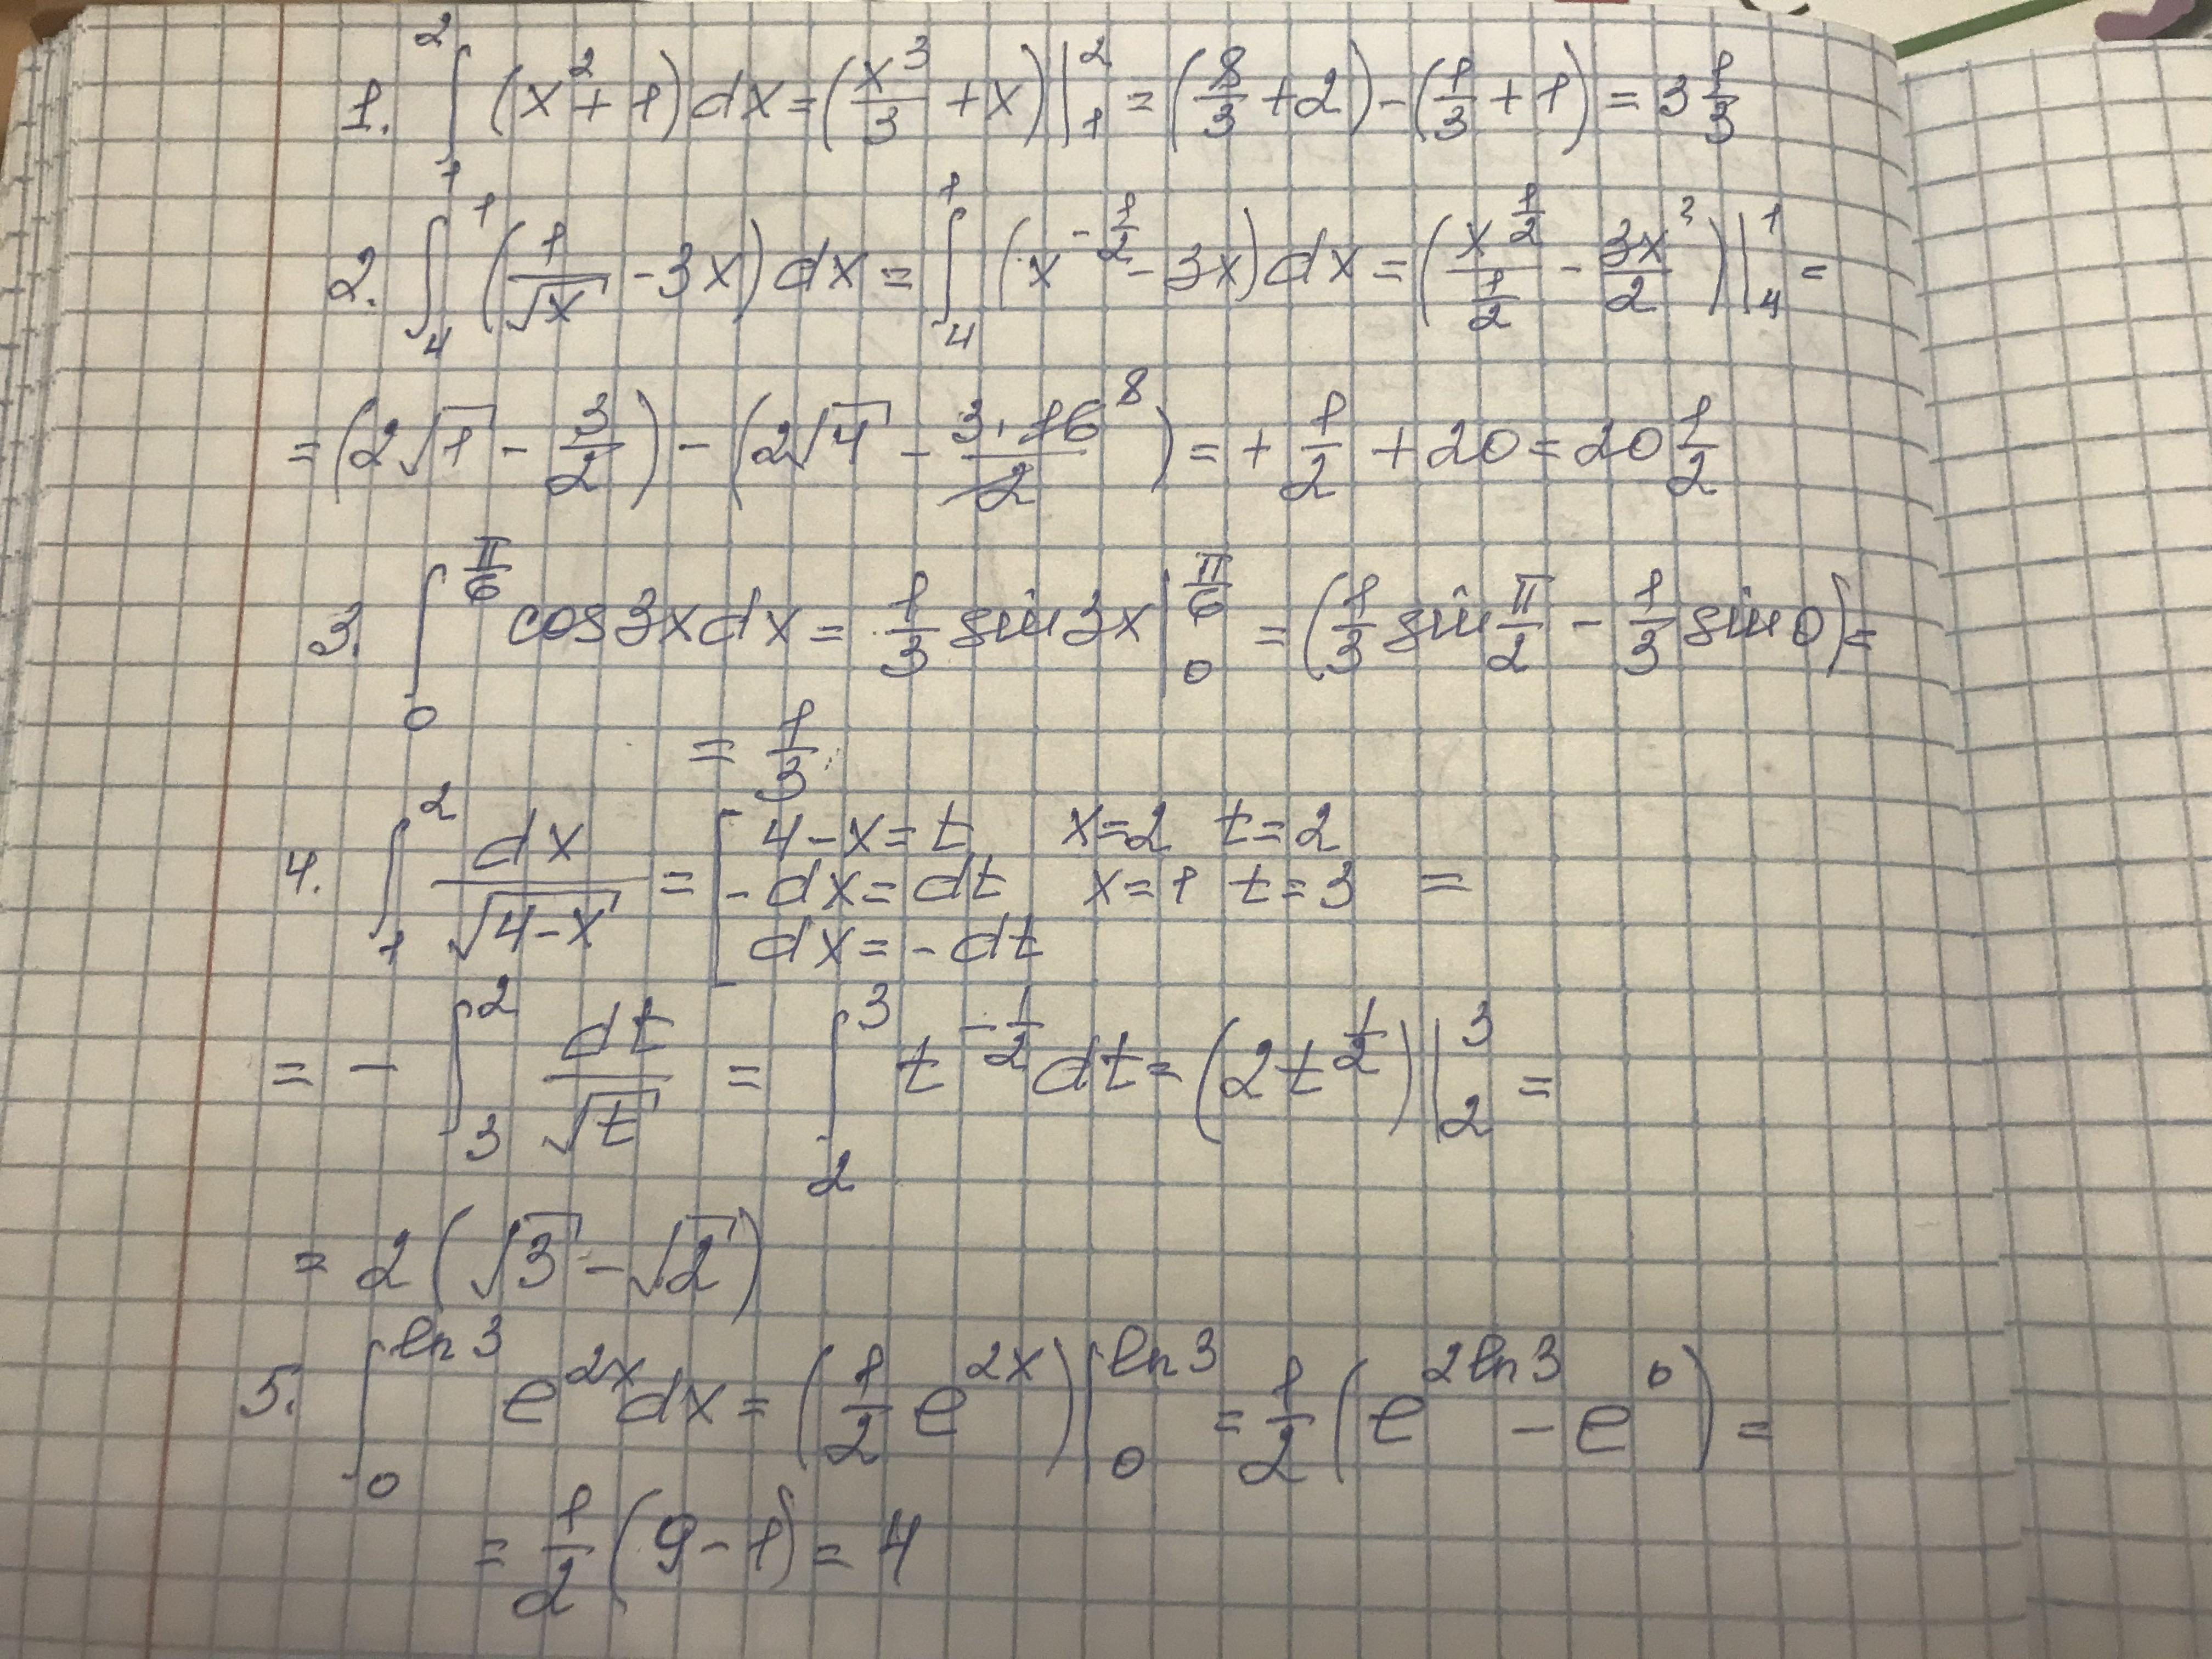 1. ∫₁² (x² + 1) dx = (x³/3 + x)|₁² = (8/3 + 2) - (1/3 + 1) = 3 1/3
2. ∫₄¹ (1/√x - 3x) dx = ∫₄¹ (x^(-1/2) - 3x) dx = (x^(1/2)/(1/2) - 3x²/2)|₄¹ =
= (2√1 - 3/2) - (2√4 - 3·16⁸/2) = + 1/2 + 20 = 20 1/2
3. ∫₀^(π/6) cos3x dx = 1/3 sin3x|₀^(π/6) = (1/3 sin π/2 - 1/3 sin 0) =
= 1/3
4. ∫₁² dx/√(4-x) = [4-x = t x=2 t=2
-dx = dt x=1 t=3 =
dx = -dt
= - ∫₃² dt/√t = ∫₂³ t^(-1/2) dt = (2t^(1/2))|₂³ =
= 2(√3 - √2)
5. ∫₀^(ln3) e^(2x) dx = (1/2 e^(2x))|₀^(ln3) = 1/2 (e^(2ln3) - e⁰) =
= 1/2 (9 - 1) = 4